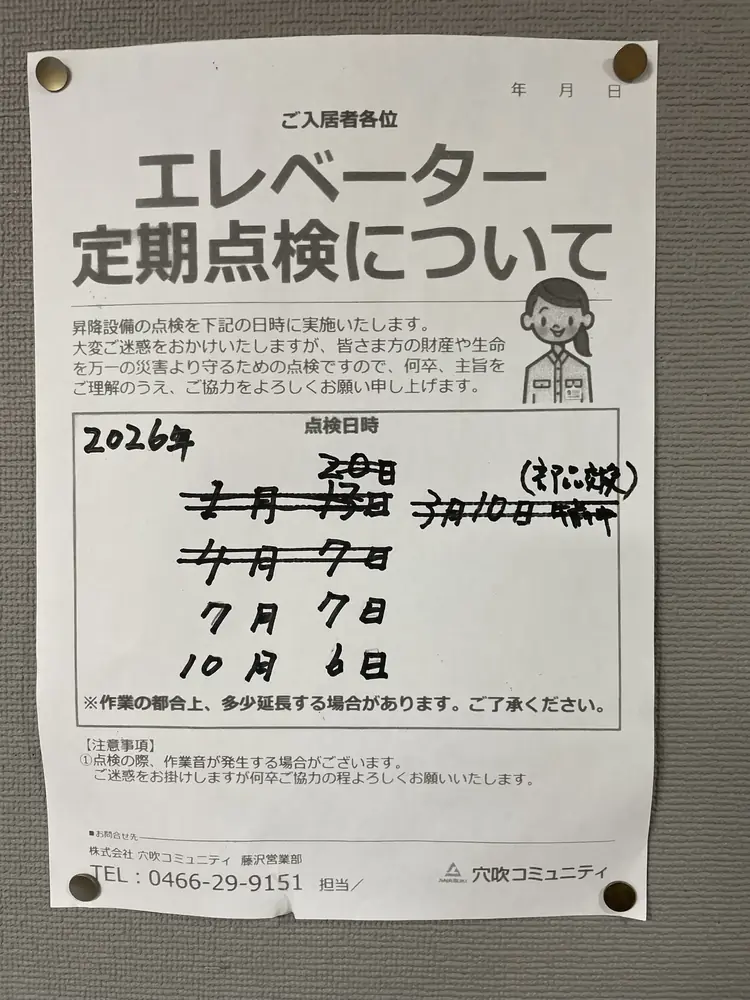 年 月 日
ご入居者各位
エレベーター
定期点検について
昇降設備の点検を下記の日時に実施いたします。
大変ご迷惑をおかけいたしますが、皆さま方の財産や生命
を万一の災害より守るための点検ですので、何卒、主旨を
ご理解のうえ、ご協力をよろしくお願い申し上げます。
点検日時
2026年
20日
1月 13日
(部品交換)
3月10日 午前中
4月 7日
7月 7日
10月 6日
※作業の都合上、多少延長する場合があります。ご了承ください。
【注意事項】
①点検の際、作業音が発生する場合がございます。
ご迷惑をお掛けしますが何卒ご協力の程よろしくお願いいたします。
■お問合せ先
株式会社 穴吹コミュニティ 藤沢営業部
TEL：0466-29-9151 担当／
穴吹コミュニティ